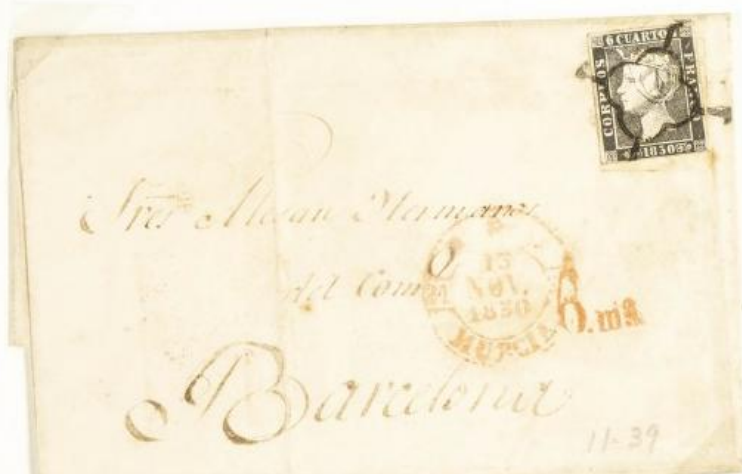 6 CUARTOS
CORREOS
FRANCO
1850
Sres
Hermanos
del Como
15
NOV.
1850
MURCIA
6.ms
Barcelona
11-39